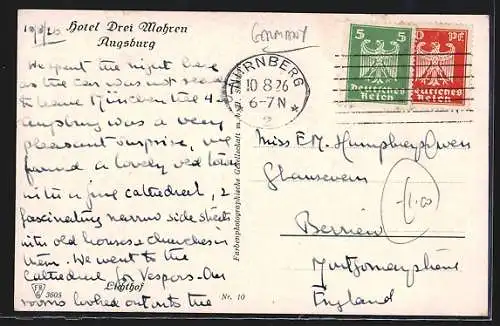 10/8/26
Hotel Drei Mohren
Augsburg
We spent the night here
as the car was not ready
to leave München till 4-
Augsburg was a very
pleasant surprise, we
found a lovely old town
with a fine cathedral, &
fascinating narrow side streets
with old houses & churches in
them. We went to the
Cathedral for Vespers. Our
rooms looked out onto the
Lichthof
FPG
3605
Nr. 10
Farbenphotographische Gesellschaft m.b.H.
GERMANY
NÜRNBERG
10 8 26
6-7 N
2
5 5
Deutsches
Reich
Pf
Deutsches
Reich
Miss E M. Humphreys Owen
Glansevern
Berriew
Montgomeryshire
England
1.00